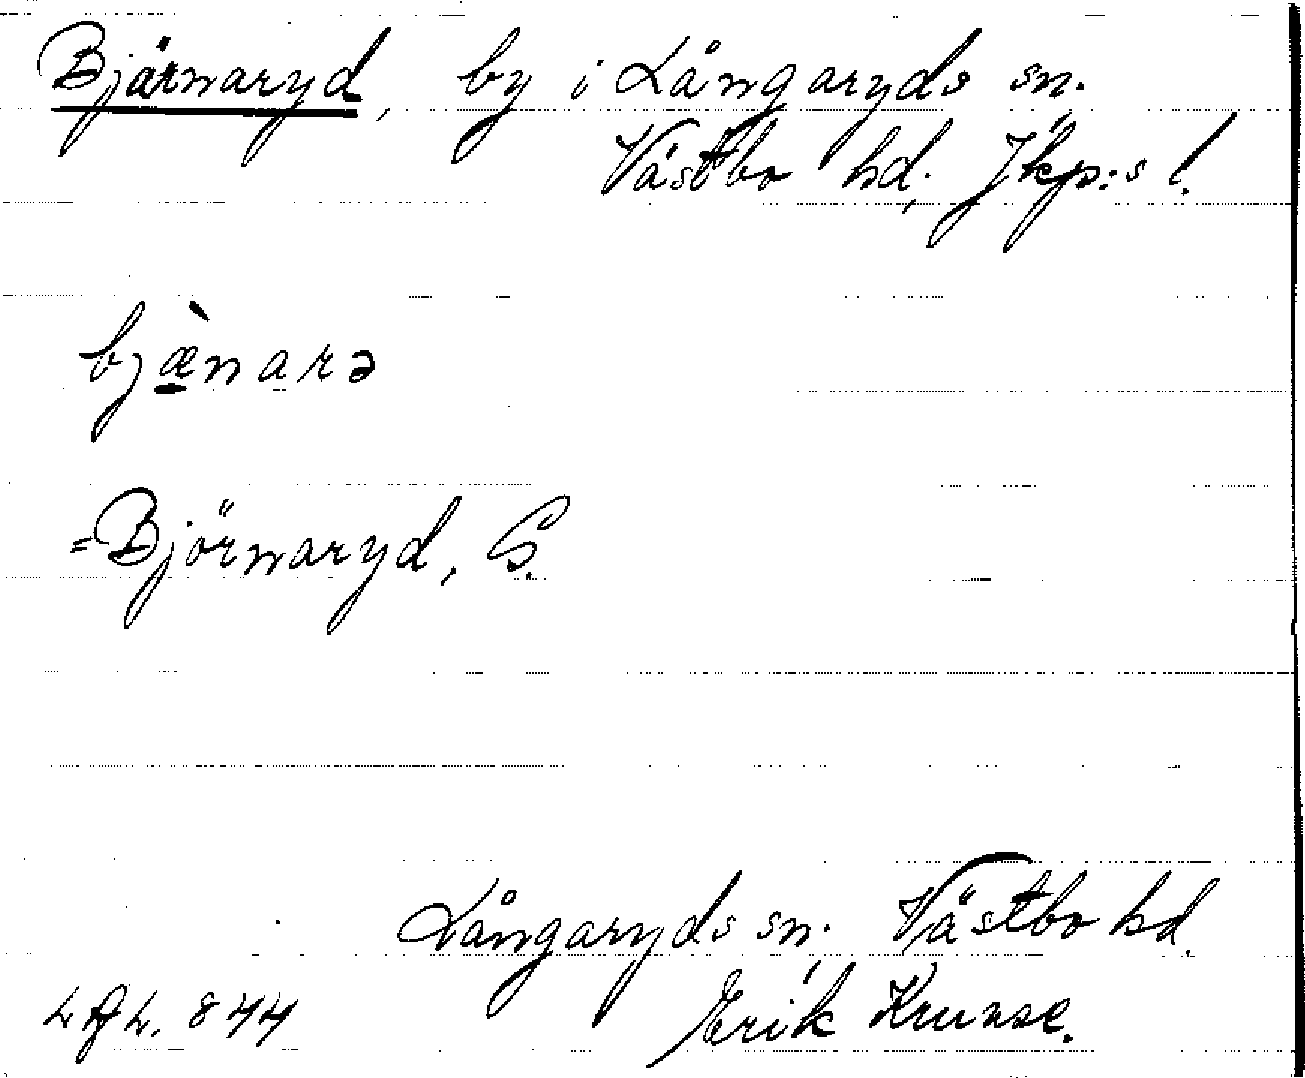 Bjärnaryd, by i Långaryds sn.
Västbo hd; Jkp:s l.
bjæ̀narə
=Björnaryd, S.
Långaryds sn. Västbo hd.
844 Erik Krusse.